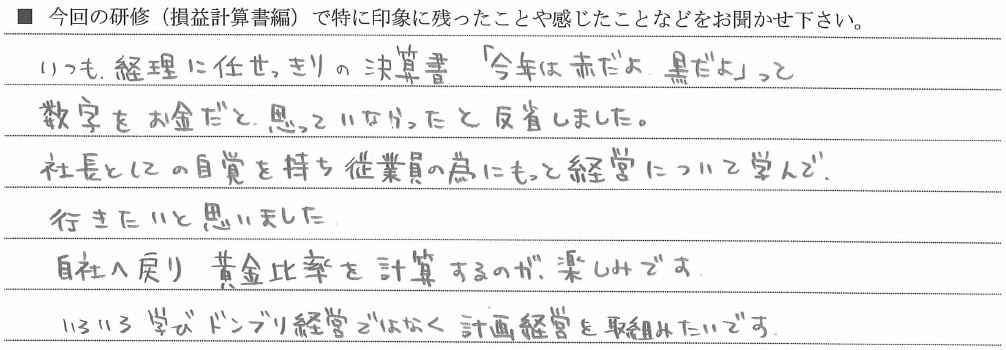 ■ 今回の研修（損益計算書編）で特に印象に残ったことや感じたことなどをお聞かせ下さい。
いつも、経理に任せっきりの決算書「今年は赤だよ、黒だよ」って
数字をお金だと、思っていなかったと反省しました。
社長としての自覚を持ち従業員の為にもっと経営について学んで、
行きたいと思いました。
自社へ戻り 黄金比率を計算するのが、楽しみです。
いろいろ学びドンブリ経営ではなく計画経営を取組みたいです。